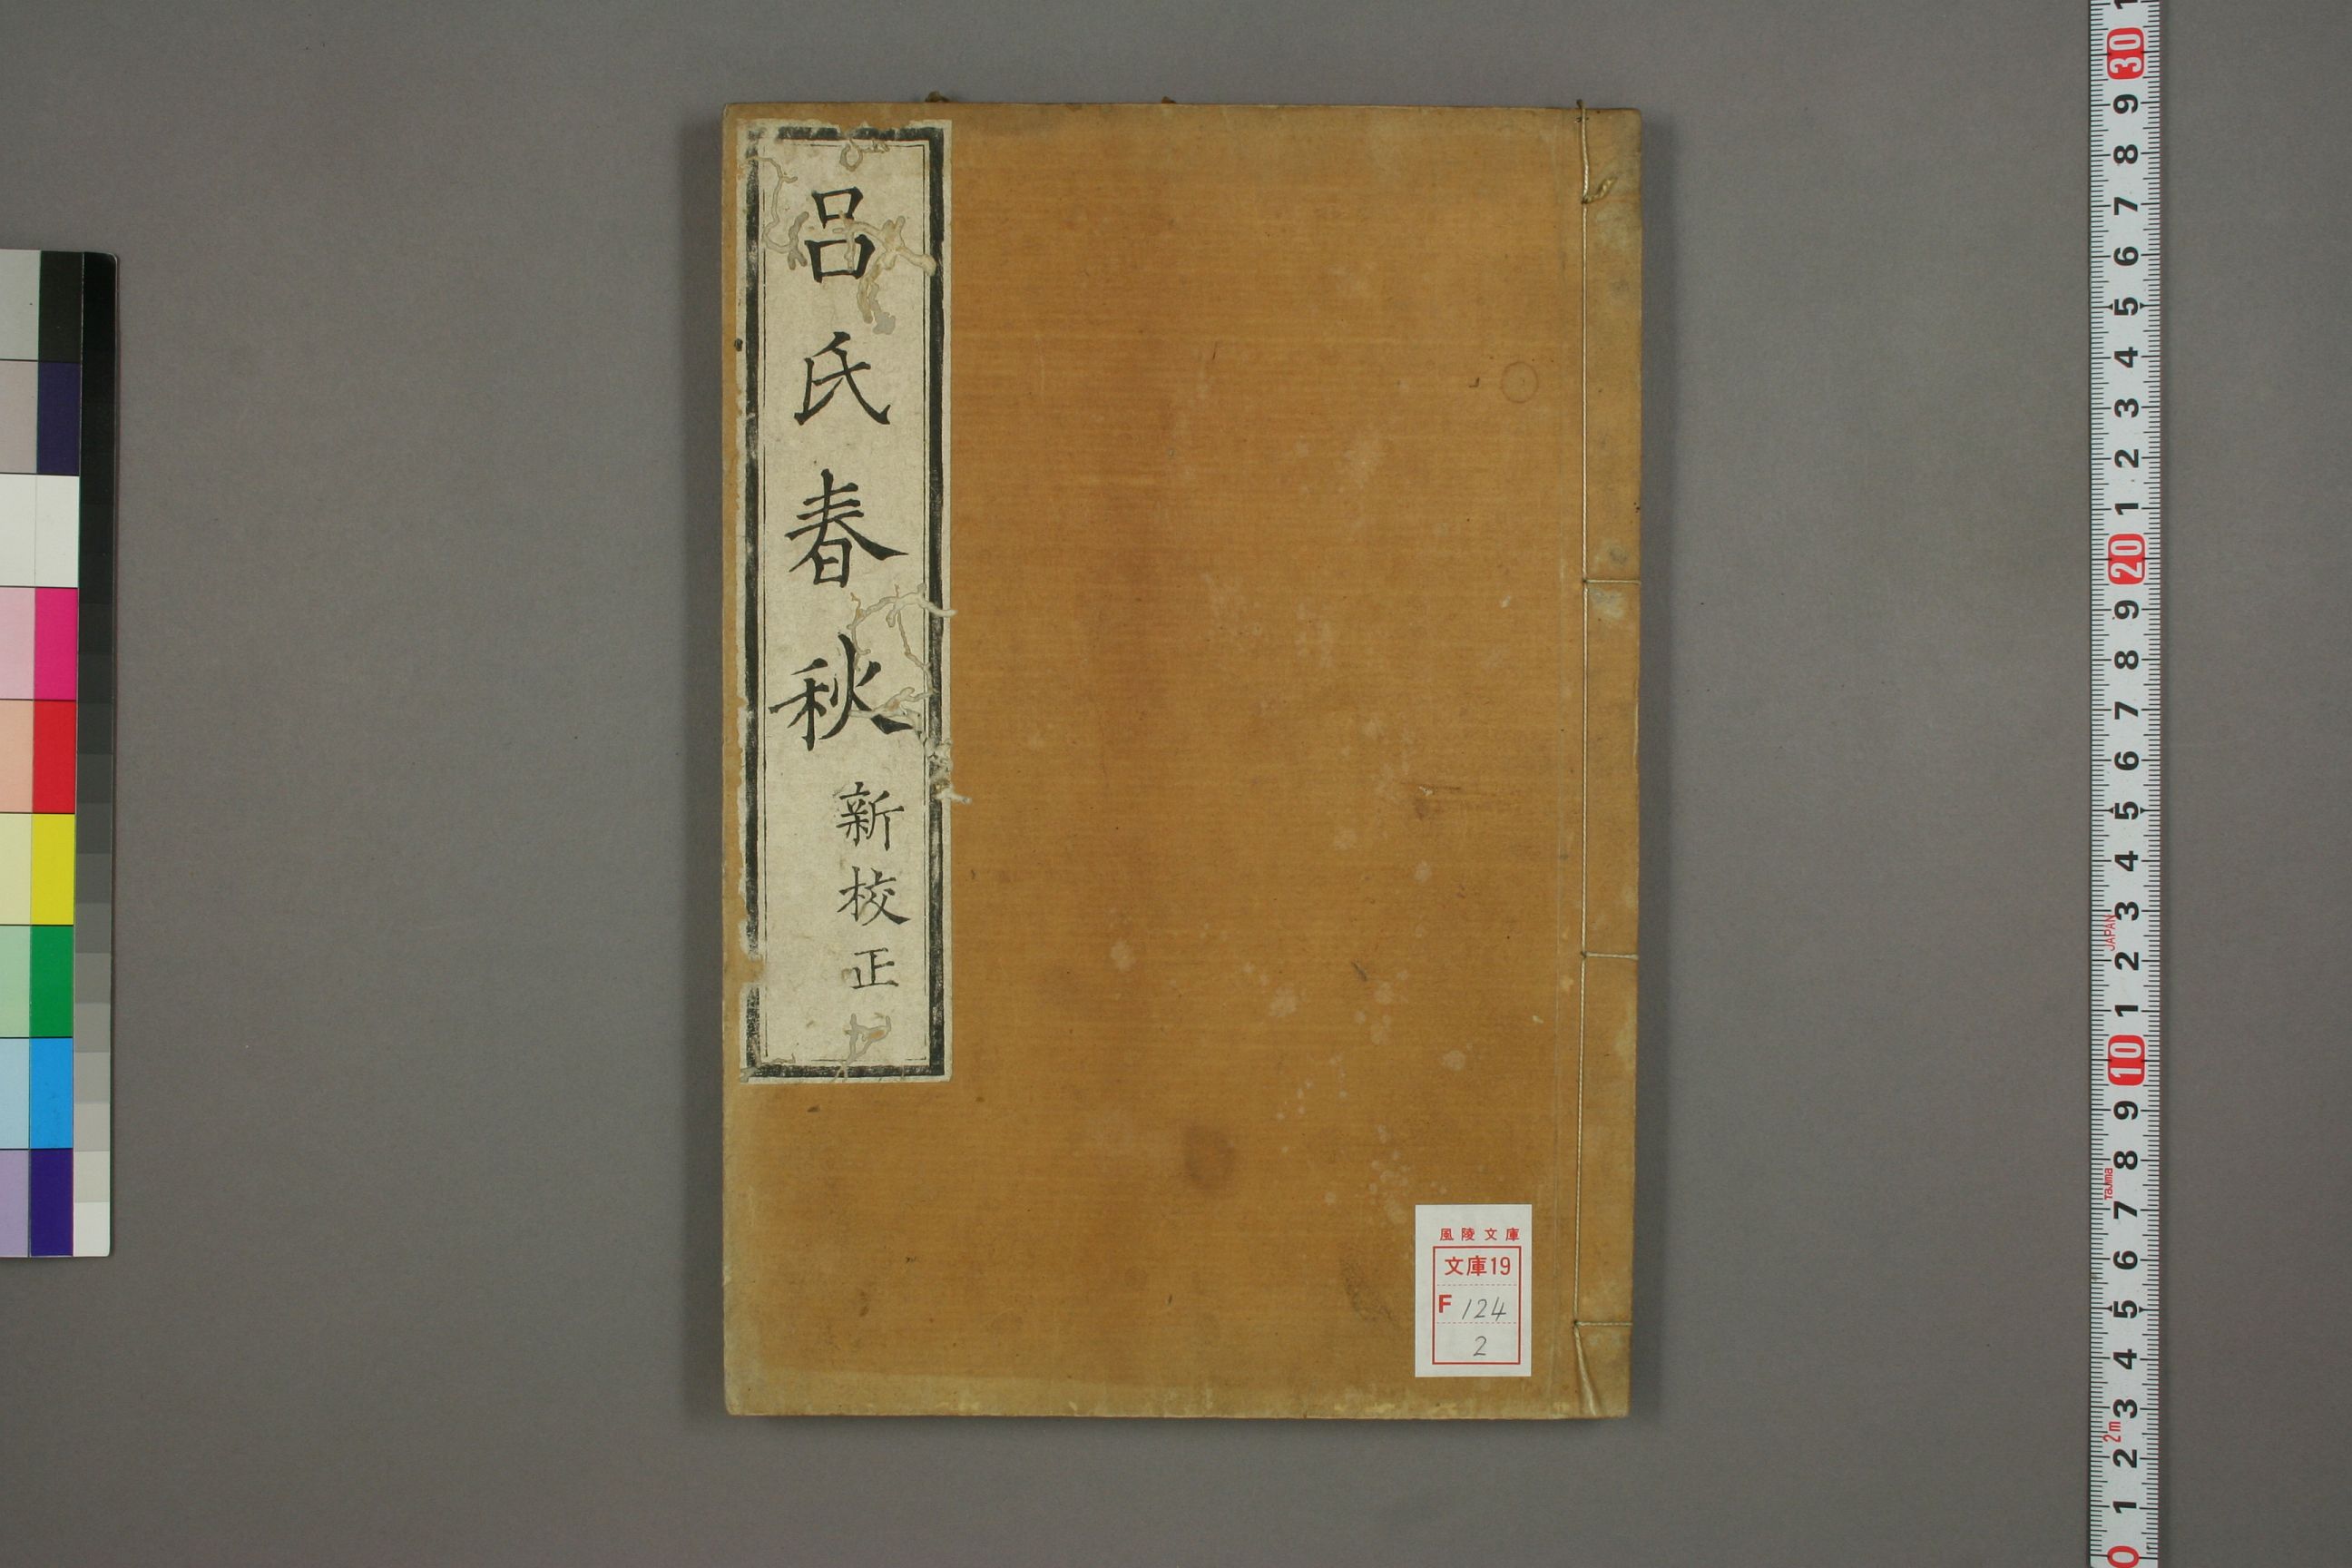 呂氏春秋
新校正
風陵文庫
文庫19
F 124
2
1
30
9
8
7
6
5
4
3
2
1
20
9
8
7
6
5
4
3
JAPAN
2
1
10
9
8
Tajima
7
6
5
4
3
2m
2
1
0